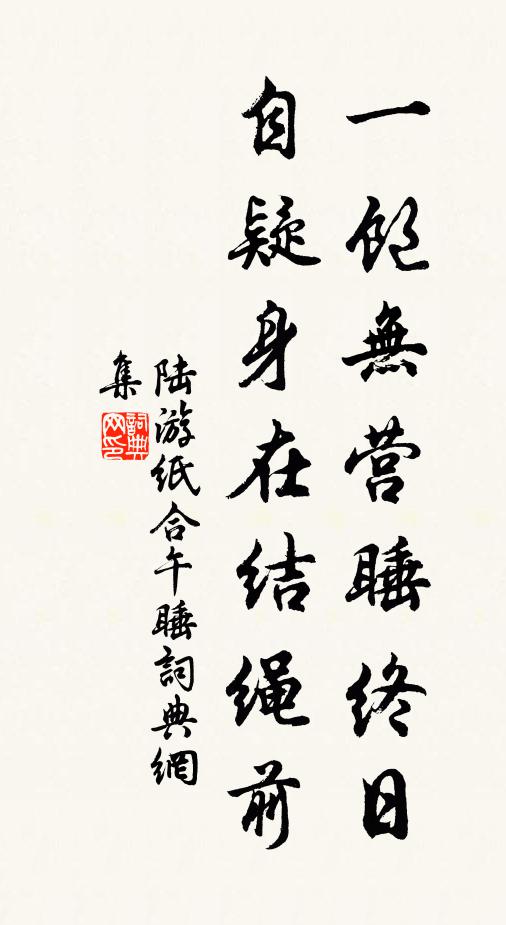 一飽無营睡終日
自疑身在结绳前
陆游纸合午睡詞典網
集
詞典网印